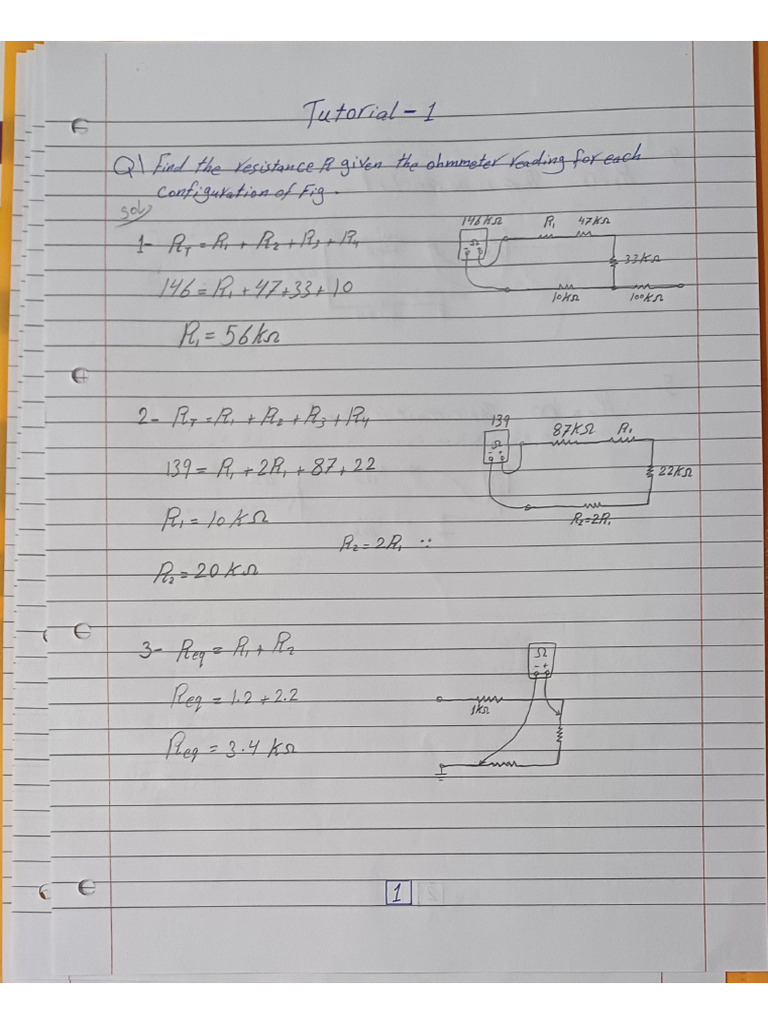 Tutorial - 1
Q1 Find the resistance R given the ohmmeter reading for each
configuration of Fig.
Sol/
1- RT = R1 + R2 + R3 + R4
146 = R1 + 47 + 33 + 10
R1 = 56KΩ
146KΩ
Ω
- +
R1
47KΩ
33KΩ
10KΩ
100KΩ
2- RT = R1 + R2 + R3 + R4
139 = R1 + 2R1 + 87 + 22
R1 = 10KΩ
R2 = 2R1 ∵
R2 = 20KΩ
139
Ω
- +
87KΩ
R1
22KΩ
R2=2R1
3- Req = R1 + R2
Req = 1.2 + 2.2
Req = 3.4 KΩ
Ω
- +
1KΩ
1